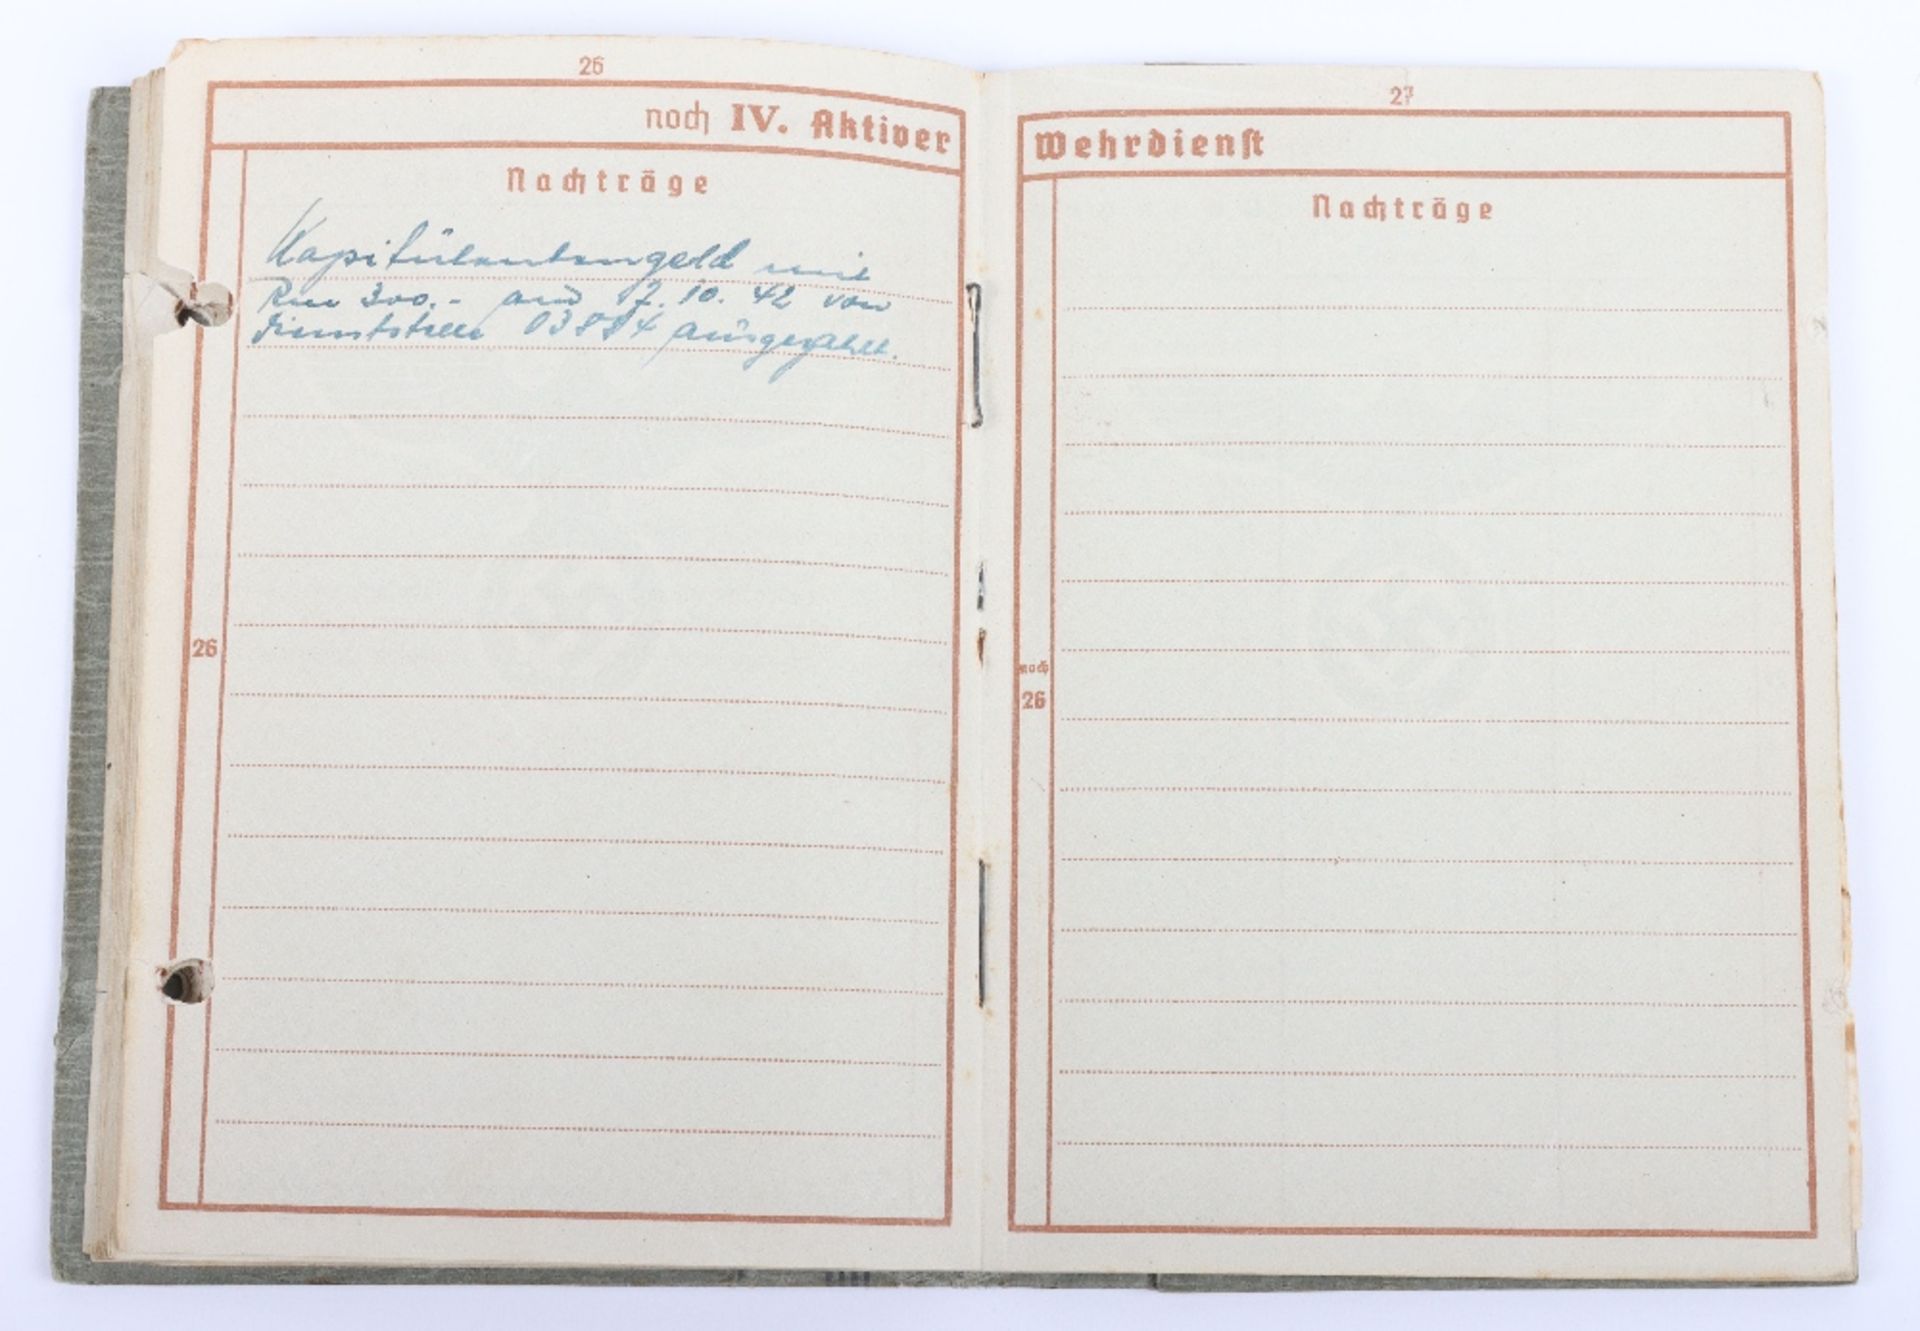 26
noch IV. Aktiver
Nachträge
Kapitülantengeld mit
Rm 300.- am 7.10.42 von
Dienststelle 03884 ausgezahlt.
26
27
Wehrdienst
Nachträge
noch
26